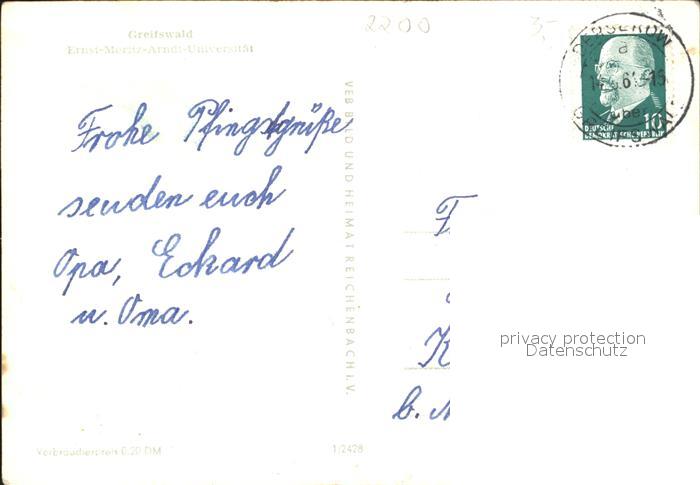 Greifswald
Ernst-Moritz-Arndt-Universität
2200
3,-
Frohe Pfingstgrüße
senden euch
Opa, Eckard
u. Oma.
VEB BILD UND HEIMAT REICHENBACH i.V.
DEUTSCHE
DEMOKRATISCHE REPUBLIK
10
a
über
F
K
b.
privacy protection
Datenschutz
Verbraucherpreis 0,20 DM
1/2428